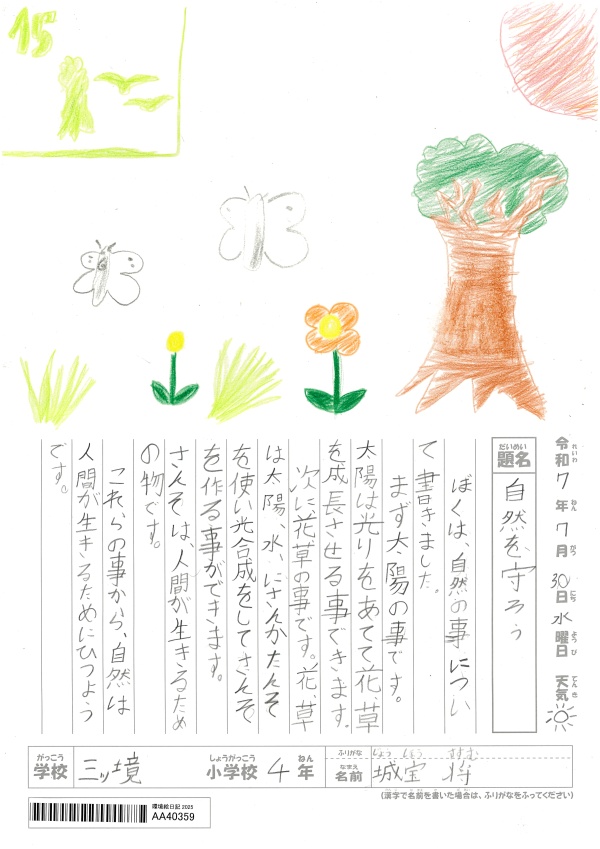 15
令和7年7月30日水曜日 天気
れいわ ねん がつ にち ようび てんき
だいめい
題名 自然を守ろう
ぼくは、自然の事につい
て書きました。
まず太陽の事です。
太陽は光りをあてて花、草
を成長させる事できます。
次に、花、草の事です。花、草
は太陽、水、にさんかたんそ
を使い光合成をしてさんそ
を作る事ができます。
さんそは、人間が生きるため
の物です。
これらの事から、自然は
人間が生きるためにひつよう
です。
がっこう しょうがっこう ねん
学校 三ッ境 小学校 4年
ふりがな しょう すすむ
なまえ
名前 城宝 将
(漢字で名前を書いた場合は、ふりがなをふってください)
環境絵日記 2025
AA40359